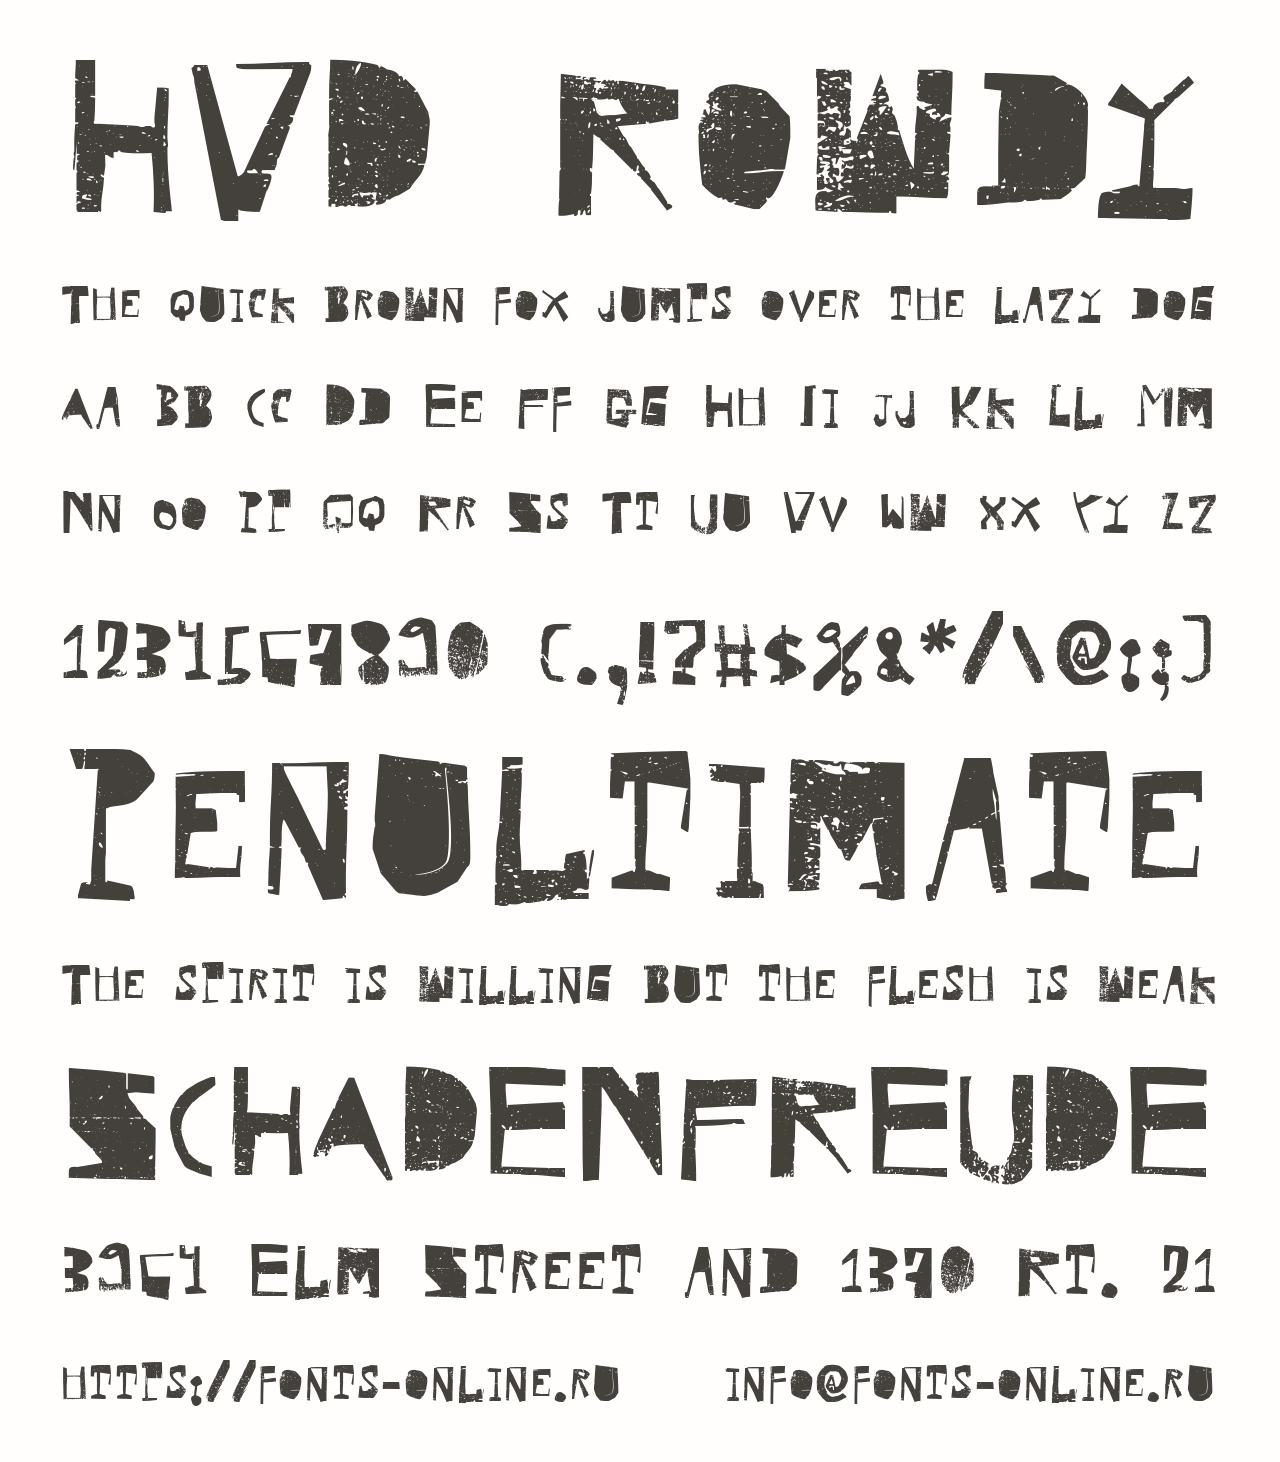 HVD ROWDY
THE QUICK BROWN FOX JUMPS OVER THE LAZY DOG
AA BB CC DD EE FF GG HH II JJ KK LL MM
NN OO PP QQ RR SS TT UU VV WW XX YY ZZ
1234567890 (.,!?#$%&*/\@:;)
PENULTIMATE
THE SPIRIT IS WILLING BUT THE FLESH IS WEAK
SCHADENFREUDE
3964 ELM STREET AND 1370 RT. 21
HTTPS://FONTS-ONLINE.RU INFO@FONTS-ONLINE.RU